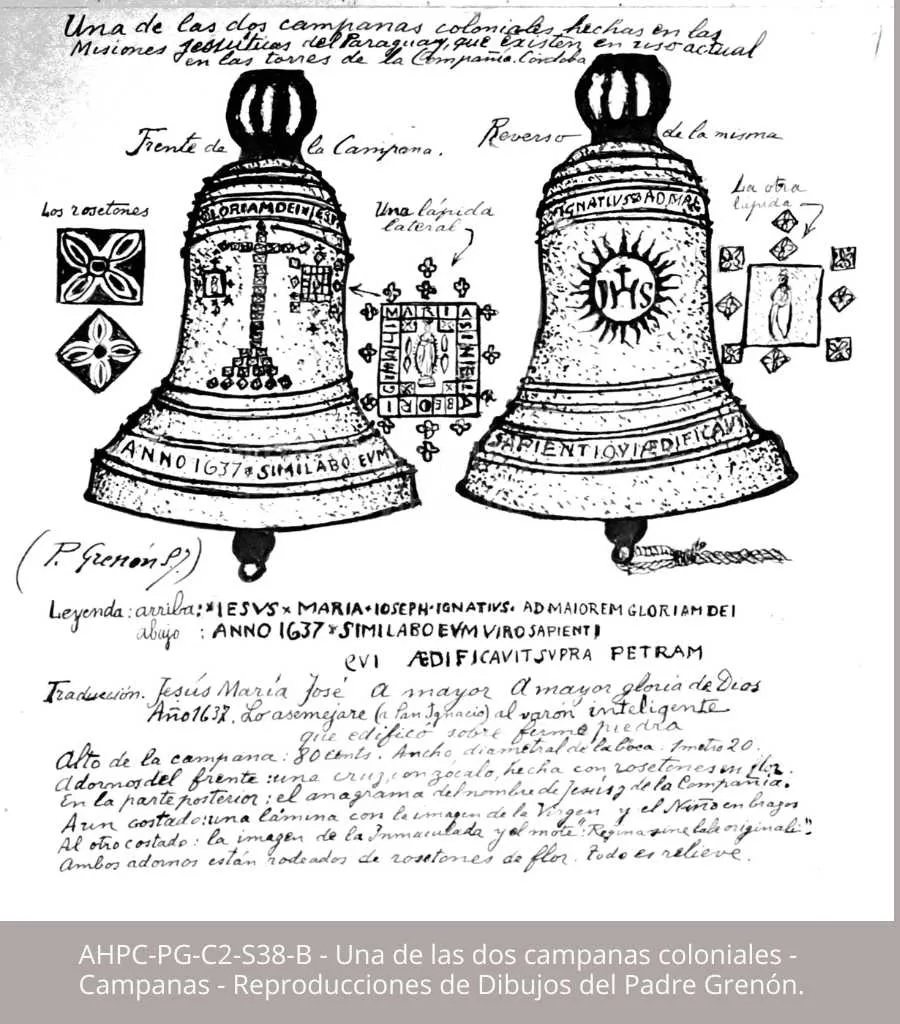 Una de las dos campanas coloniales, hechas en las
Misiones jesuíticas del Paraguay, que existen en uso actual
en las torres de la Compañía. Córdoba
Frente de la Campana.
Reverso de la misma
Los rosetones
Una lápida
lateral
La otra
lápida
GLORIAMDEI IESV
IGNATIVS AD MA
IHS
MARIA
ANNO 1637 * SIMILABO EVM
SAPIENTI QVI ÆDIFICAVI
(P. Grenón SJ)
Leyenda: arriba: *IESVS × MARIA · IOSEPH · IGNATIVS · AD MAIOREM GLORIAM DEI
abajo : ANNO 1637 * SIMILABO EVM VIRO SAPIENTI
QVI ÆDIFICAVIT SVPRA PETRAM
Traducción. Jesús María José A mayor A mayor gloria de Dios
Año 1637. Lo asemejare (a San Ignacio) al varón inteligente
que edificó sobre firme piedra
Alto de la campana: 80 cents. Ancho, diametral de la boca: 1 metro 20.
Adornos del frente: una cruz, con zócalo, hecha con rosetones en flor.
En la parte posterior: el anagrama del nombre de Jesús y de la Compañía.
A un costado: una lámina con la imagen de la Virgen y el Niño en brazos
Al otro costado: la imagen de la Inmaculada y el mote: "Regina sine labe originali".
Ambos adornos están rodeados de rosetones de flor. Todo es relieve.
AHPC-PG-C2-S38-B - Una de las dos campanas coloniales -
Campanas - Reproducciones de Dibujos del Padre Grenón.